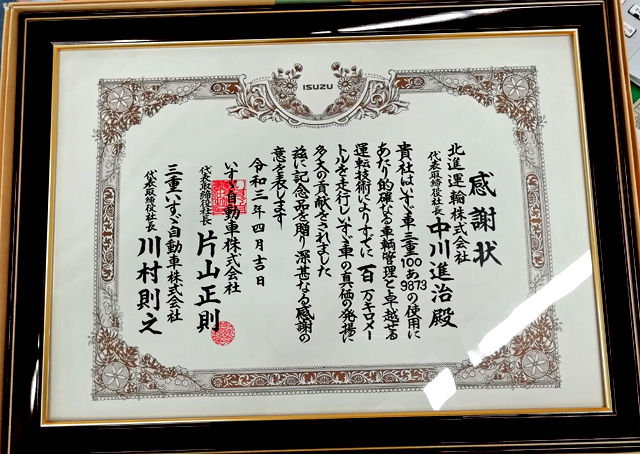 ISUZU
感謝状
北進運輸株式会社
代表取締役社長 中川進治 殿
貴社はいすゞ車三重100あ9873の使用に
あたり的確なる車輌管理と卓越せる
運転技術によりすでに百万キロメー
トルを走行しいすゞ車の真価の発揚に
多大の貢献をされました
茲に記念品を贈り深甚なる感謝の
意を表します
令和三年四月吉日
いすゞ自動車株式会社
代表取締役社長 片山正則
三重いすゞ自動車株式会社
代表取締役社長 川村則之